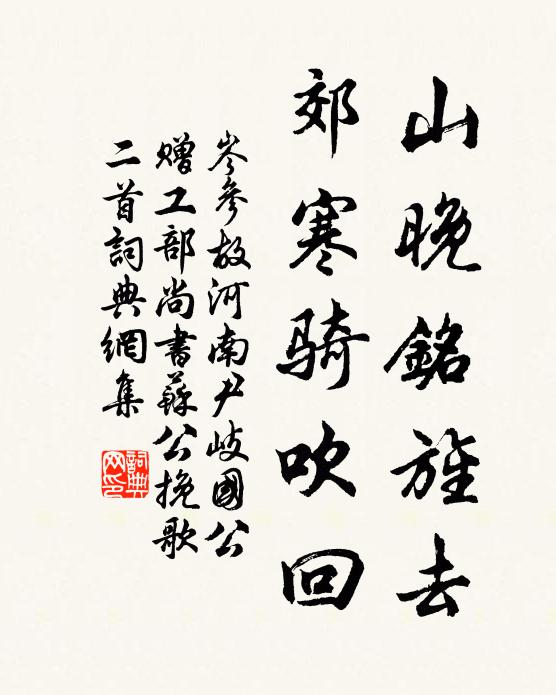 山晚銘旌去
郊寒骑吹回
岑參故河南尹岐國公
赠工部尚書蘇公挽歌
二首詞典網集
詞典网印